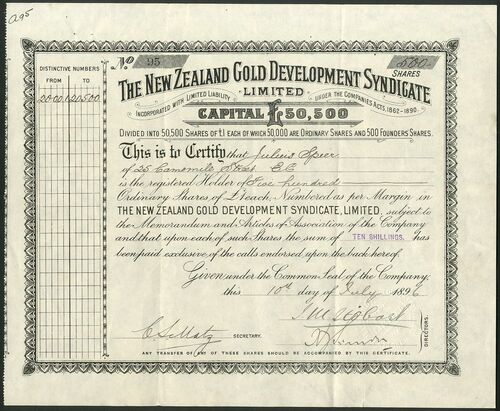 a95
DISTINCTIVE NUMBERS
FROM TO
20001 20500
No 95
500
SHARES
THE NEW ZEALAND GOLD DEVELOPMENT SYNDICATE
LIMITED
INCORPORATED WITH LIMITED LIABILITY UNDER THE COMPANIES ACTS, 1862-1890.
CAPITAL £50,500
DIVIDED INTO 50,500 SHARES OF £1 EACH OF WHICH 50,000 ARE ORDINARY SHARES AND 500 FOUNDERS SHARES.
This is to Certify that Julius Speer
of 25 Camomile Street E.C.
is the registered Holder of Five hundred
Ordinary Shares of £1 each Numbered as per Margin in
THE NEW ZEALAND GOLD DEVELOPMENT SYNDICATE, LIMITED, subject to
the Memorandum and Articles of Association of the Company
and that upon each of such Shares the sum of TEN SHILLINGS. has
been paid exclusive of the calls endorsed upon the back hereof.
Given under the Common Seal of the Company,
this 10th day of July 1896
SECRETARY.
DIRECTORS.
ANY TRANSFER OF ANY OF THESE SHARES SHOULD BE ACCOMPANIED BY THIS CERTIFICATE.